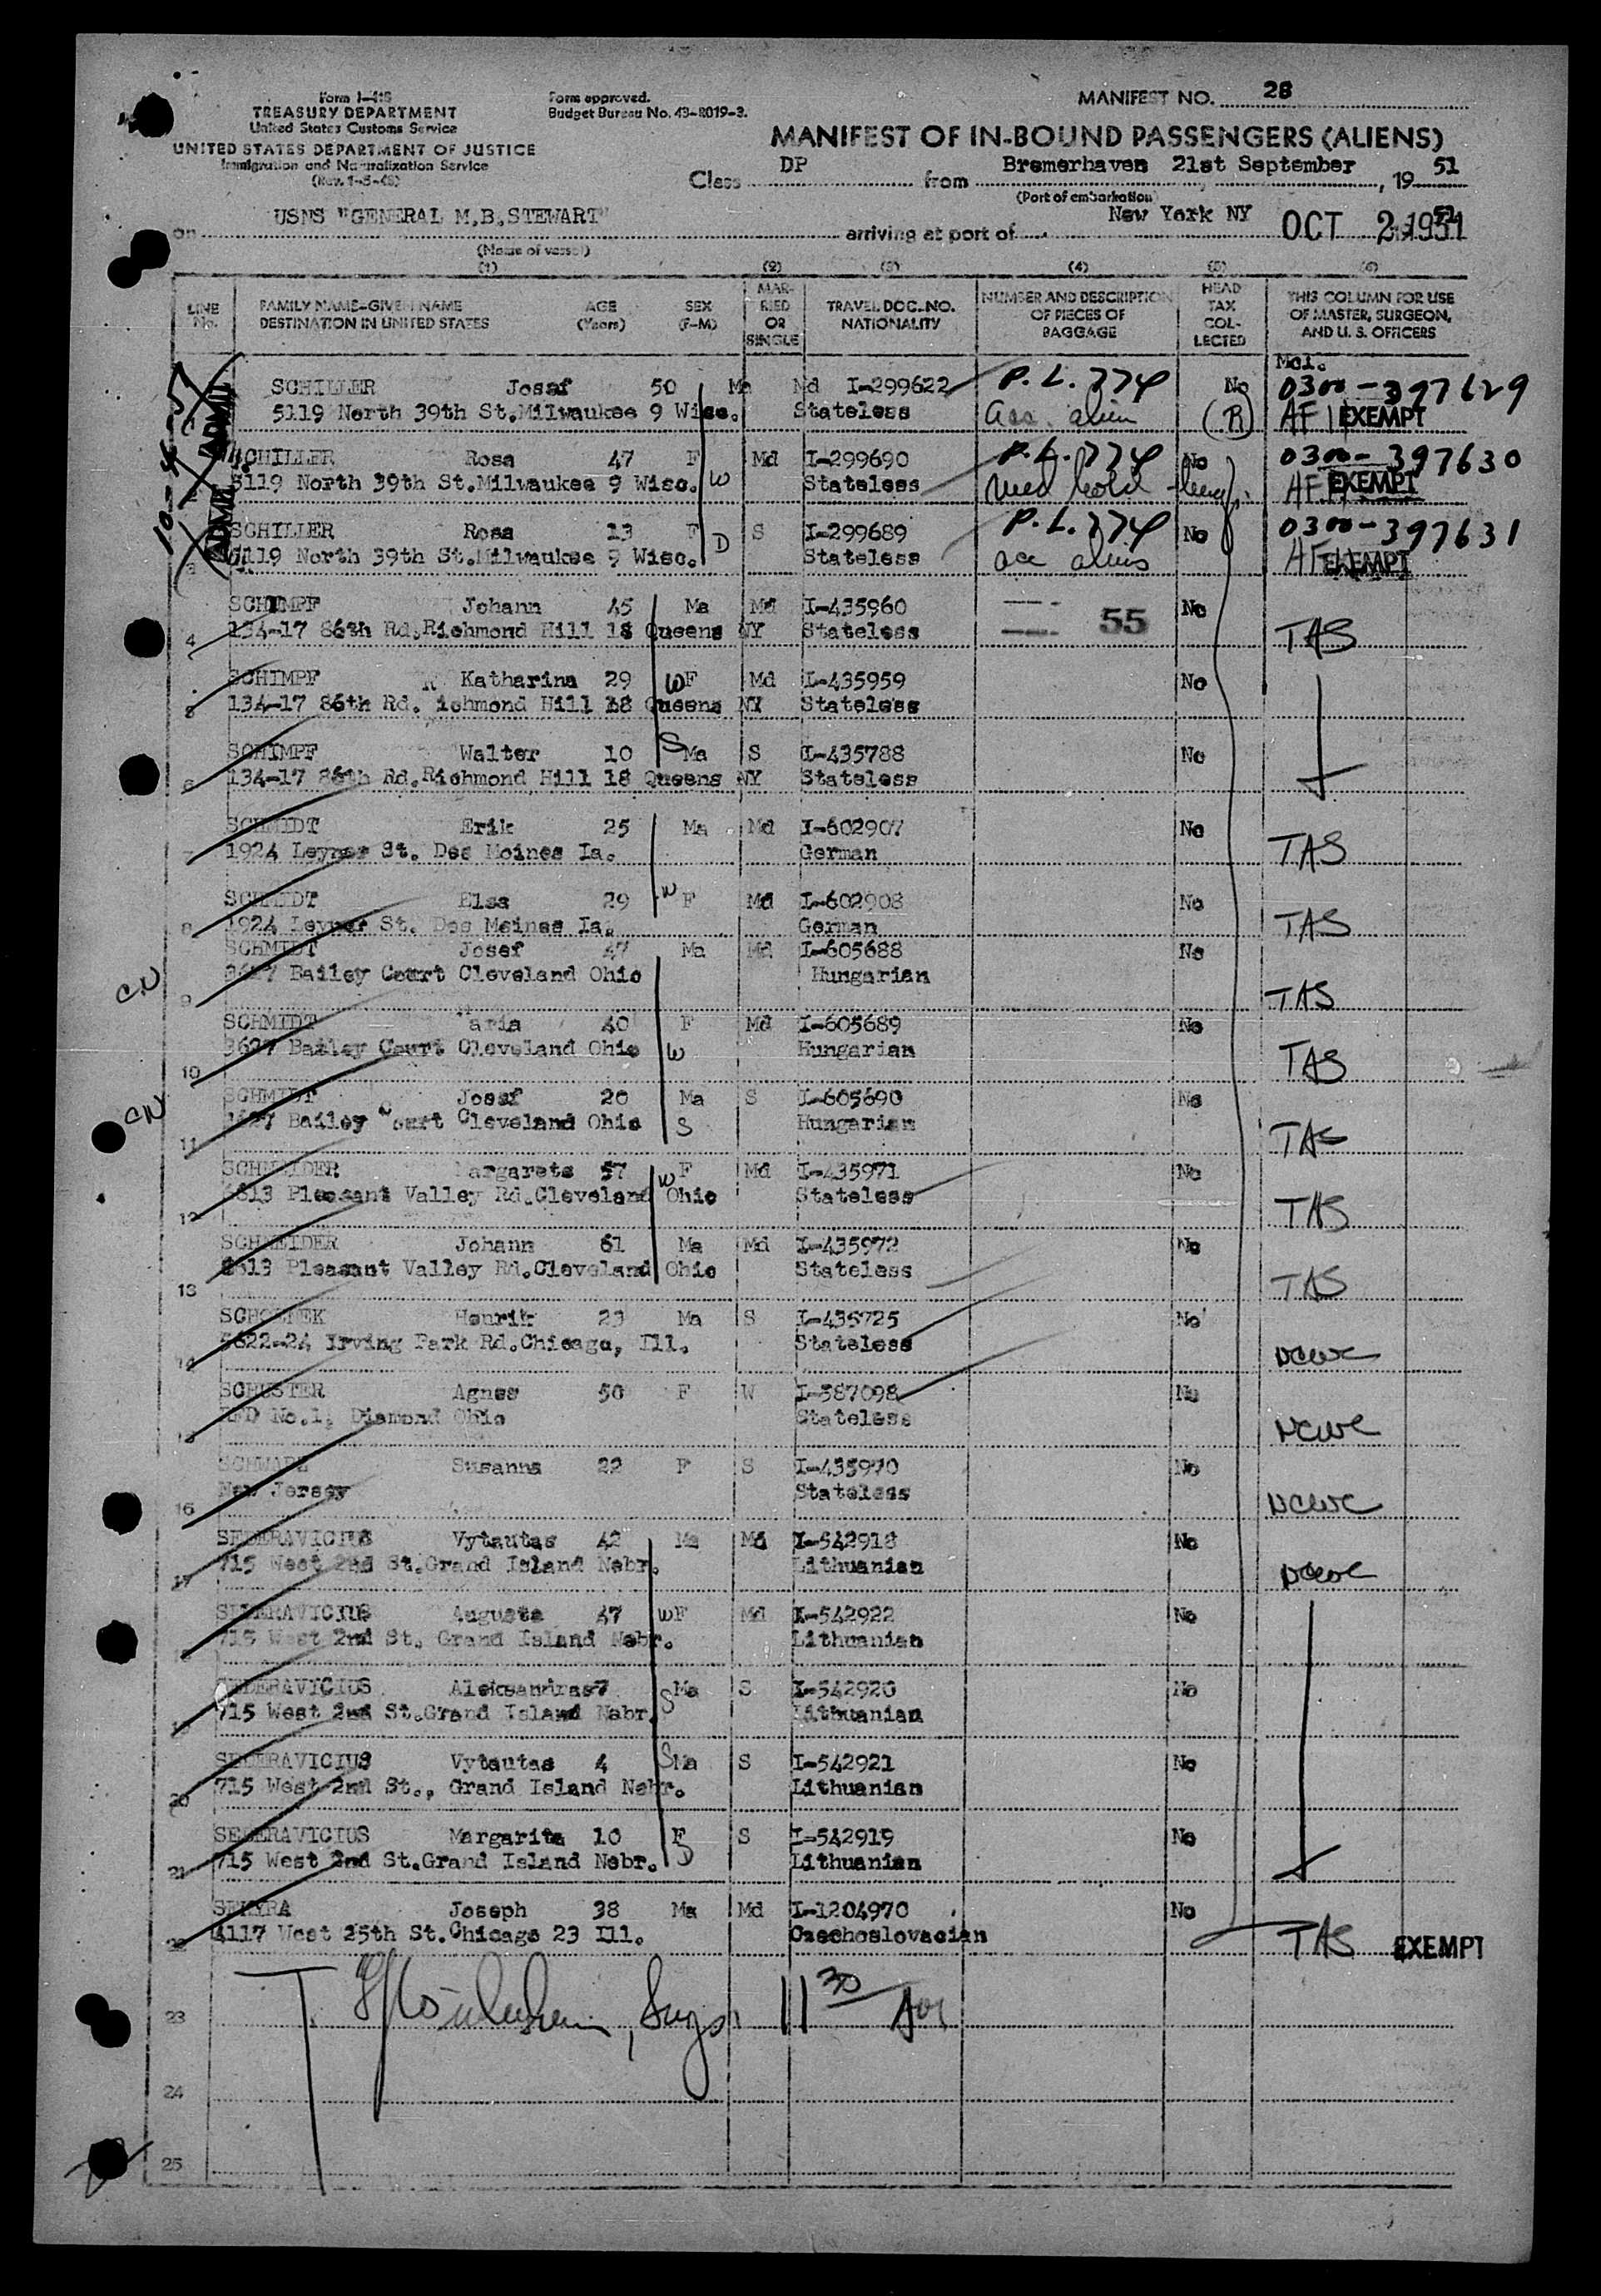 Form I-418
TREASURY DEPARTMENT
United States Customs Service
UNITED STATES DEPARTMENT OF JUSTICE
Immigration and Naturalization Service
(Rev. 1-5-48)
Form approved.
Budget Bureau No. 43-R019-3.
MANIFEST NO. 28
MANIFEST OF IN-BOUND PASSENGERS (ALIENS)
Class DP from Bremerhaven 21st September, 1951
(Port of embarkation)
on USNS "GENERAL M.B.STEWART" arriving at port of New York NY OCT 2 1951
(Name of vessel)
(1) (2) (3) (4) (5) (6)
LINE No. FAMILY NAME-GIVEN NAME DESTINATION IN UNITED STATES AGE (Years) SEX (F-M) MARRIED OR SINGLE TRAVEL DOC. NO. NATIONALITY NUMBER AND DESCRIPTION OF PIECES OF BAGGAGE HEAD TAX COLLECTED THIS COLUMN FOR USE OF MASTER, SURGEON, AND U. S. OFFICERS
SCHILLER Josef 50 Ma Md I-299622 P.L. 774 No 0300-397629
5119 North 39th St.Milwaukee 9 Wisc. Stateless acc. alien (R) AF EXEMPT
SCHILLER Rosa 47 F Md I-299690 P.L. 774 No 0300-397630
5119 North 39th St.Milwaukee 9 Wisc. W Stateless med hold AF EXEMPT
SCHILLER Rosa 13 F S I-299689 P.L. 774 No 0300-397631
5119 North 39th St.Milwaukee 9 Wisc. D Stateless acc aliens AF EXEMPT
SCHIMPF Johann 45 Ma Md I-435960 55 No
4 134-17 86th Rd.Richmond Hill 18 Queens NY Stateless TAS
SCHIMPF Katharina 29 W F Md I-435959 No
5 134-17 86th Rd. Richmond Hill 18 Queens NY Stateless
SCHIMPF Walter 10 S Ma S I-435788 No
6 134-17 86th Rd.Richmond Hill 18 Queens NY Stateless
SCHMIDT Erik 25 Ma Md I-602907 No
7 1924 Leyner St. Des Moines Ia. German TAS
SCHMIDT Elsa 29 W F Md I-602908 No
8 1924 Leyner St. Des Moines Ia. German TAS
SCHMIDT Josef 47 Ma Md I-605688 No
CN 9 3627 Bailey Court Cleveland Ohio Hungarian TAS
SCHMIDT Maria 40 F Md I-605689 No
10 3627 Bailey Court Cleveland Ohio W Hungarian TAS
SCHMIDT Josef 20 Ma S I-605690 No
CN 11 3627 Bailey Court Cleveland Ohio S Hungarian TAS
SCHNEIDER Margarete 57 W F Md I-435971 No
12 6613 Pleasant Valley Rd.Cleveland Ohio Stateless TAS
SCHNEIDER Johann 61 Ma Md I-435972 No
13 6613 Pleasant Valley Rd.Cleveland Ohio Stateless TAS
Henrik 23 Ma S I-436725 No
14 5622-24 Irving Park Rd.Chicago, Ill. Stateless NCWC
SCHUSTER Agnes 50 F W I-587098 No
15 RFD No.1, Diamond Ohio Stateless NCWC
SCHWARZ Susanna 22 F S I-435970 No
16 New Jersey Stateless NCWC
SEDERAVICIUS Vytautas 42 Ma Md I-542918 No
17 715 West 2nd St.Grand Island Nebr. Lithuanian NCWC
SEDERAVICIUS Augusta 47 W F Md I-542922 No
715 West 2nd St. Grand Island Nebr. Lithuanian
SEDERAVICIUS Aleksandras 7 Ma S I-542920 No
19 715 West 2nd St.Grand Island Nebr. S Lithuanian
SEDERAVICIUS Vytautas 4 S Ma S I-542921 No
20 715 West 2nd St., Grand Island Nebr. Lithuanian
SEDERAVICIUS Margarita 10 F S I-542919 No
21 715 West 2nd St.Grand Island Nebr. D Lithuanian
Joseph 38 Ma Md I-1204970 No
22 4117 West 25th St.Chicago 23 Ill. Czechoslovacian TAS EXEMPT
23 Surgn 11 30
24
25